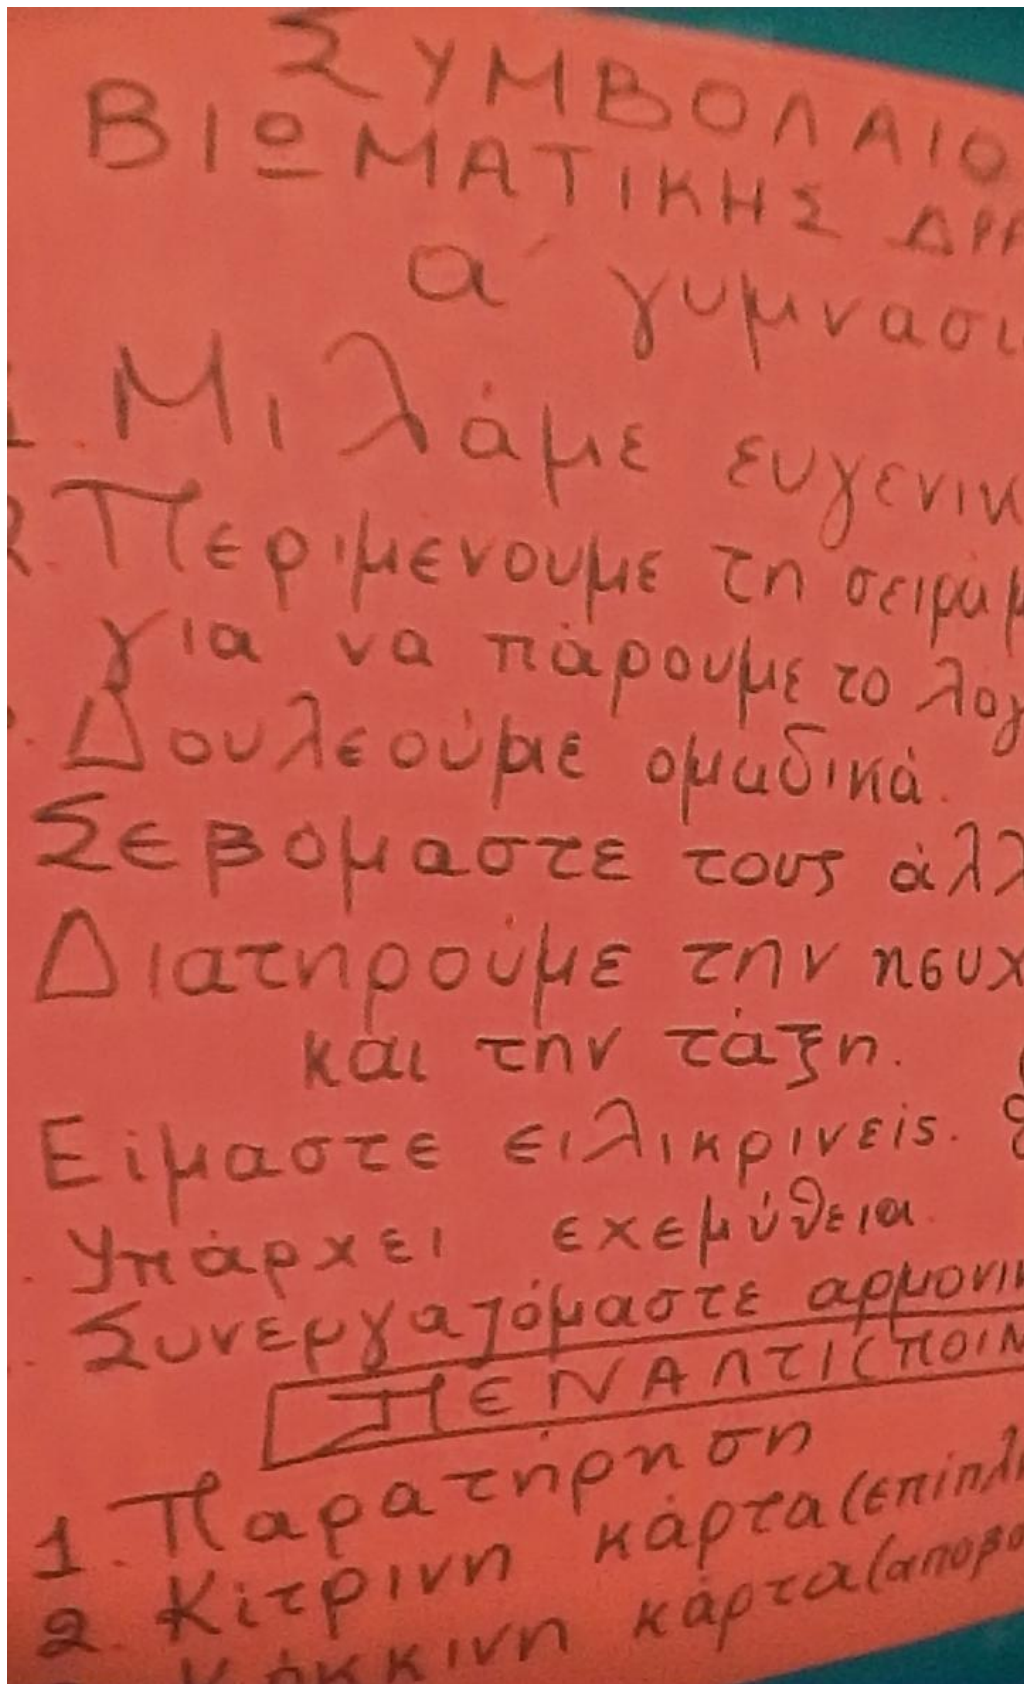 ΣΥΜΒΟΛΑΙΟ
ΒΙΩΜΑΤΙΚΗΣ ΔΡΑ
α' γυμνασι
1. Μιλάμε ευγενικ
2. Περιμενουμε τη σειρά μ
για να πάρουμε το λογ
. Δουλεούμε ομαδικά.
Σεβόμαστε τους άλλ
Διατηρούμε την ησυχ
και την τάξη.
Είμαστε ειλικρινείς.
. Υπάρχει εχεμύθεια.
. Συνεργαζόμαστε αρμονικ
ΠΕΝΑΛΤΙ (ΠΟΙΝ
1. Παρατήρηση
2. Κίτρινη κάρτα (επίπλη
Κόκκινη κάρτα (αποβο